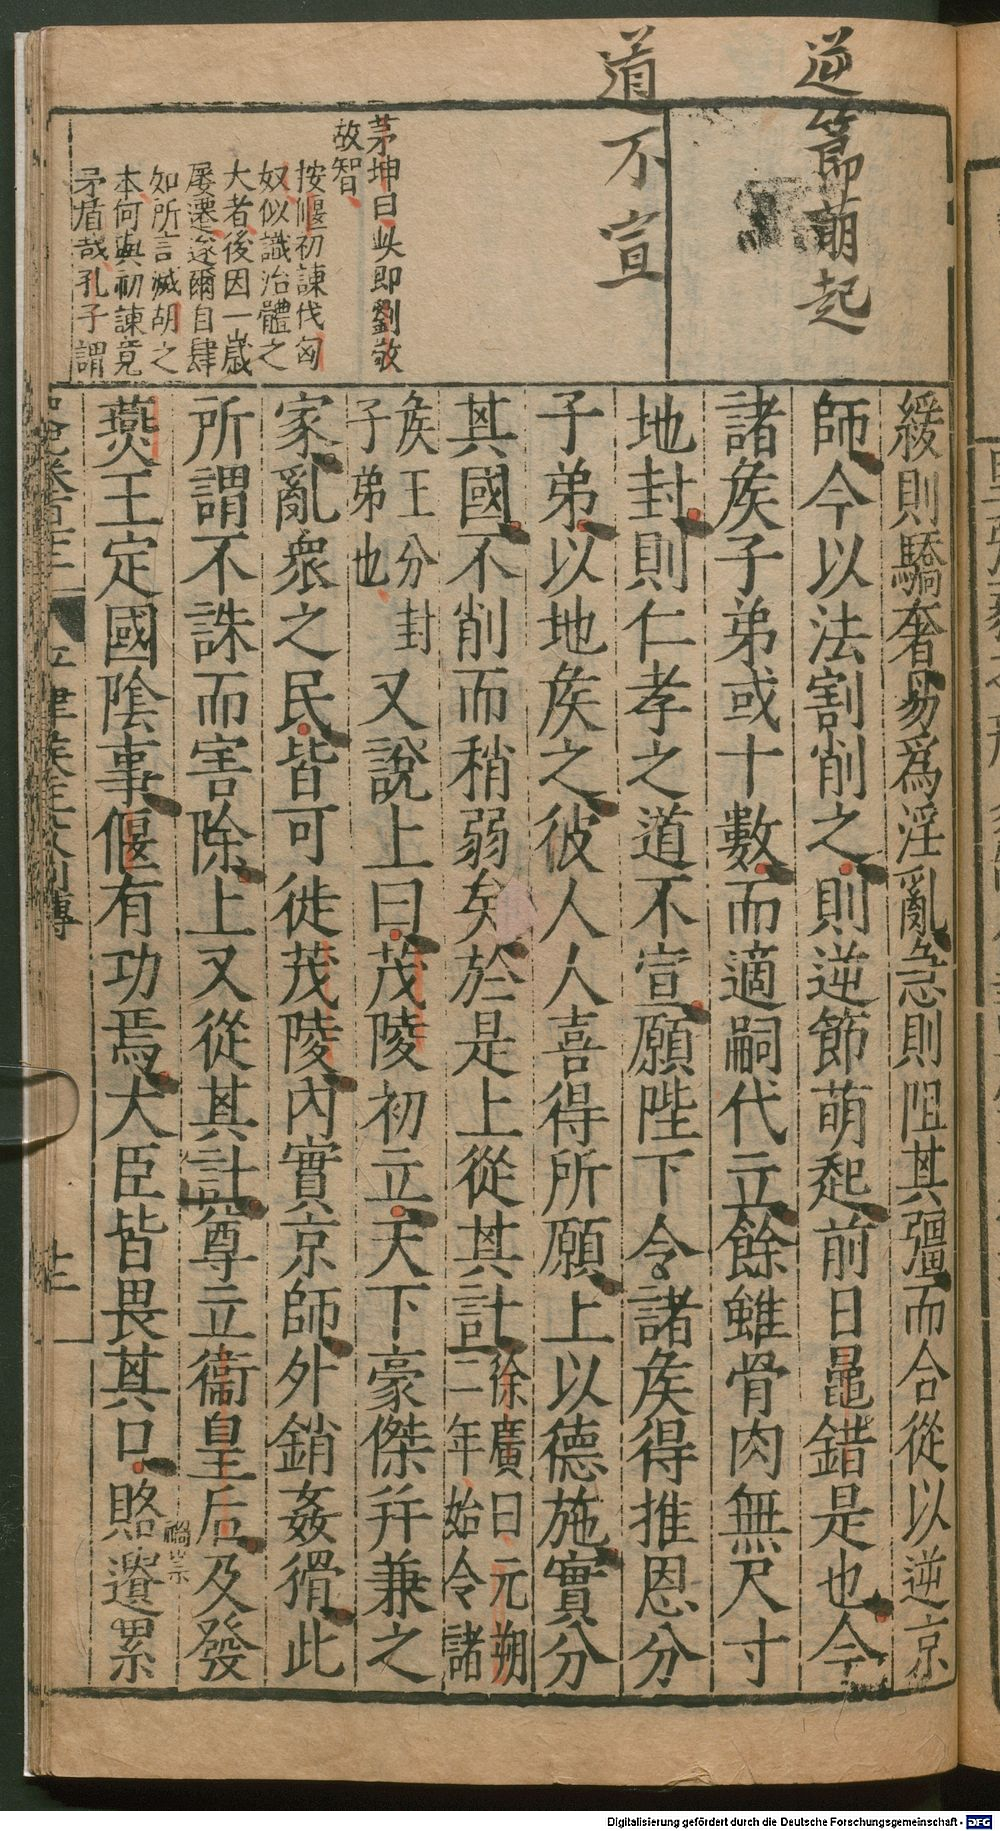 逆節萌起
道不宣
茅坤曰此即劉敬
故智
按偃初諫伐匈
奴似識治體之
大者後因一歲
屢遷遂爾自肆
如所言滅胡之
本何與初諫竟
矛盾哉孔子謂
緩則驕奢易爲淫亂急則阻其彊而合從以逆京
師今以法割削之則逆節萌起前日鼂錯是也今
諸矦子弟或十數而適嗣代立餘雖骨肉無尺寸
地封則仁孝之道不宣願陛下令諸矦得推恩分
子弟以地矦之彼人人喜得所願上以德施實分
其國不削而稍弱矣於是上從其計
徐廣曰元朔
二年始令諸
矦王分封
子弟也
又說上曰茂陵初立天下豪傑幷兼之
家亂衆之民皆可徙茂陵內實京師外銷姦猾此
所謂不誅而害除上又從其計尊立衞皇后及發
燕王定國陰事偃有功焉大臣皆畏其口賂遺累
史記卷百十二
平津矦主父列傳
Digitalisierung gefördert durch die Deutsche Forschungsgemeinschaft - DFG